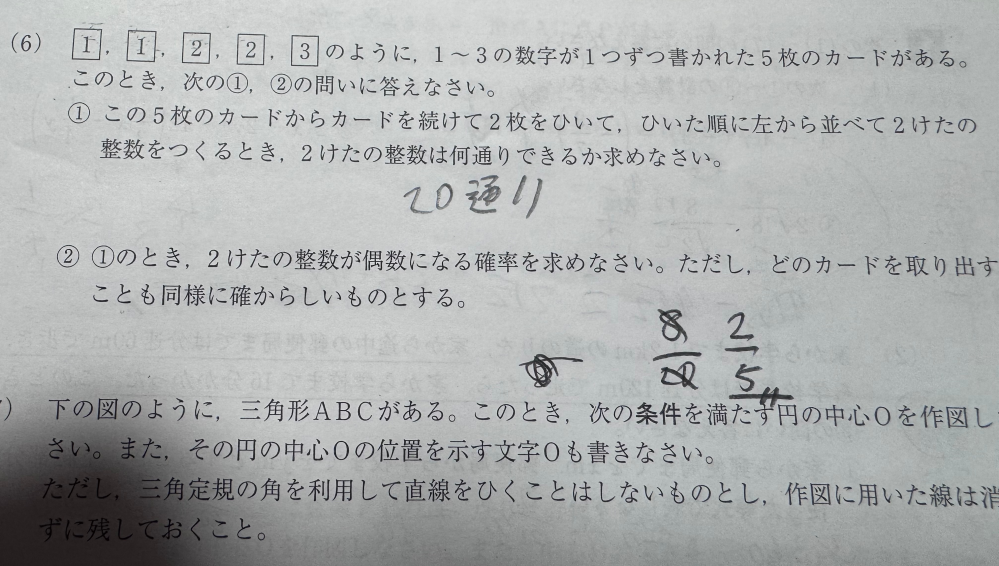 (6) 1, 1, 2, 2, 3 のように，1～3の数字が1つずつ書かれた5枚のカードがある。
このとき，次の①，②の問いに答えなさい。
① この5枚のカードからカードを続けて2枚をひいて，ひいた順に左から並べて2けたの
整数をつくるとき，2けたの整数は何通りできるか求めなさい。
20通り
② ①のとき，2けたの整数が偶数になる確率を求めなさい。ただし，どのカードを取り出す
ことも同様に確からしいものとする。
8 2
20 5
) 下の図のように，三角形ABCがある。このとき，次の条件を満たす円の中心Oを作図し
さい。また，その円の中心Oの位置を示す文字Oも書きなさい。
ただし，三角定規の角を利用して直線をひくことはしないものとし，作図に用いた線は消
ずに残しておくこと。